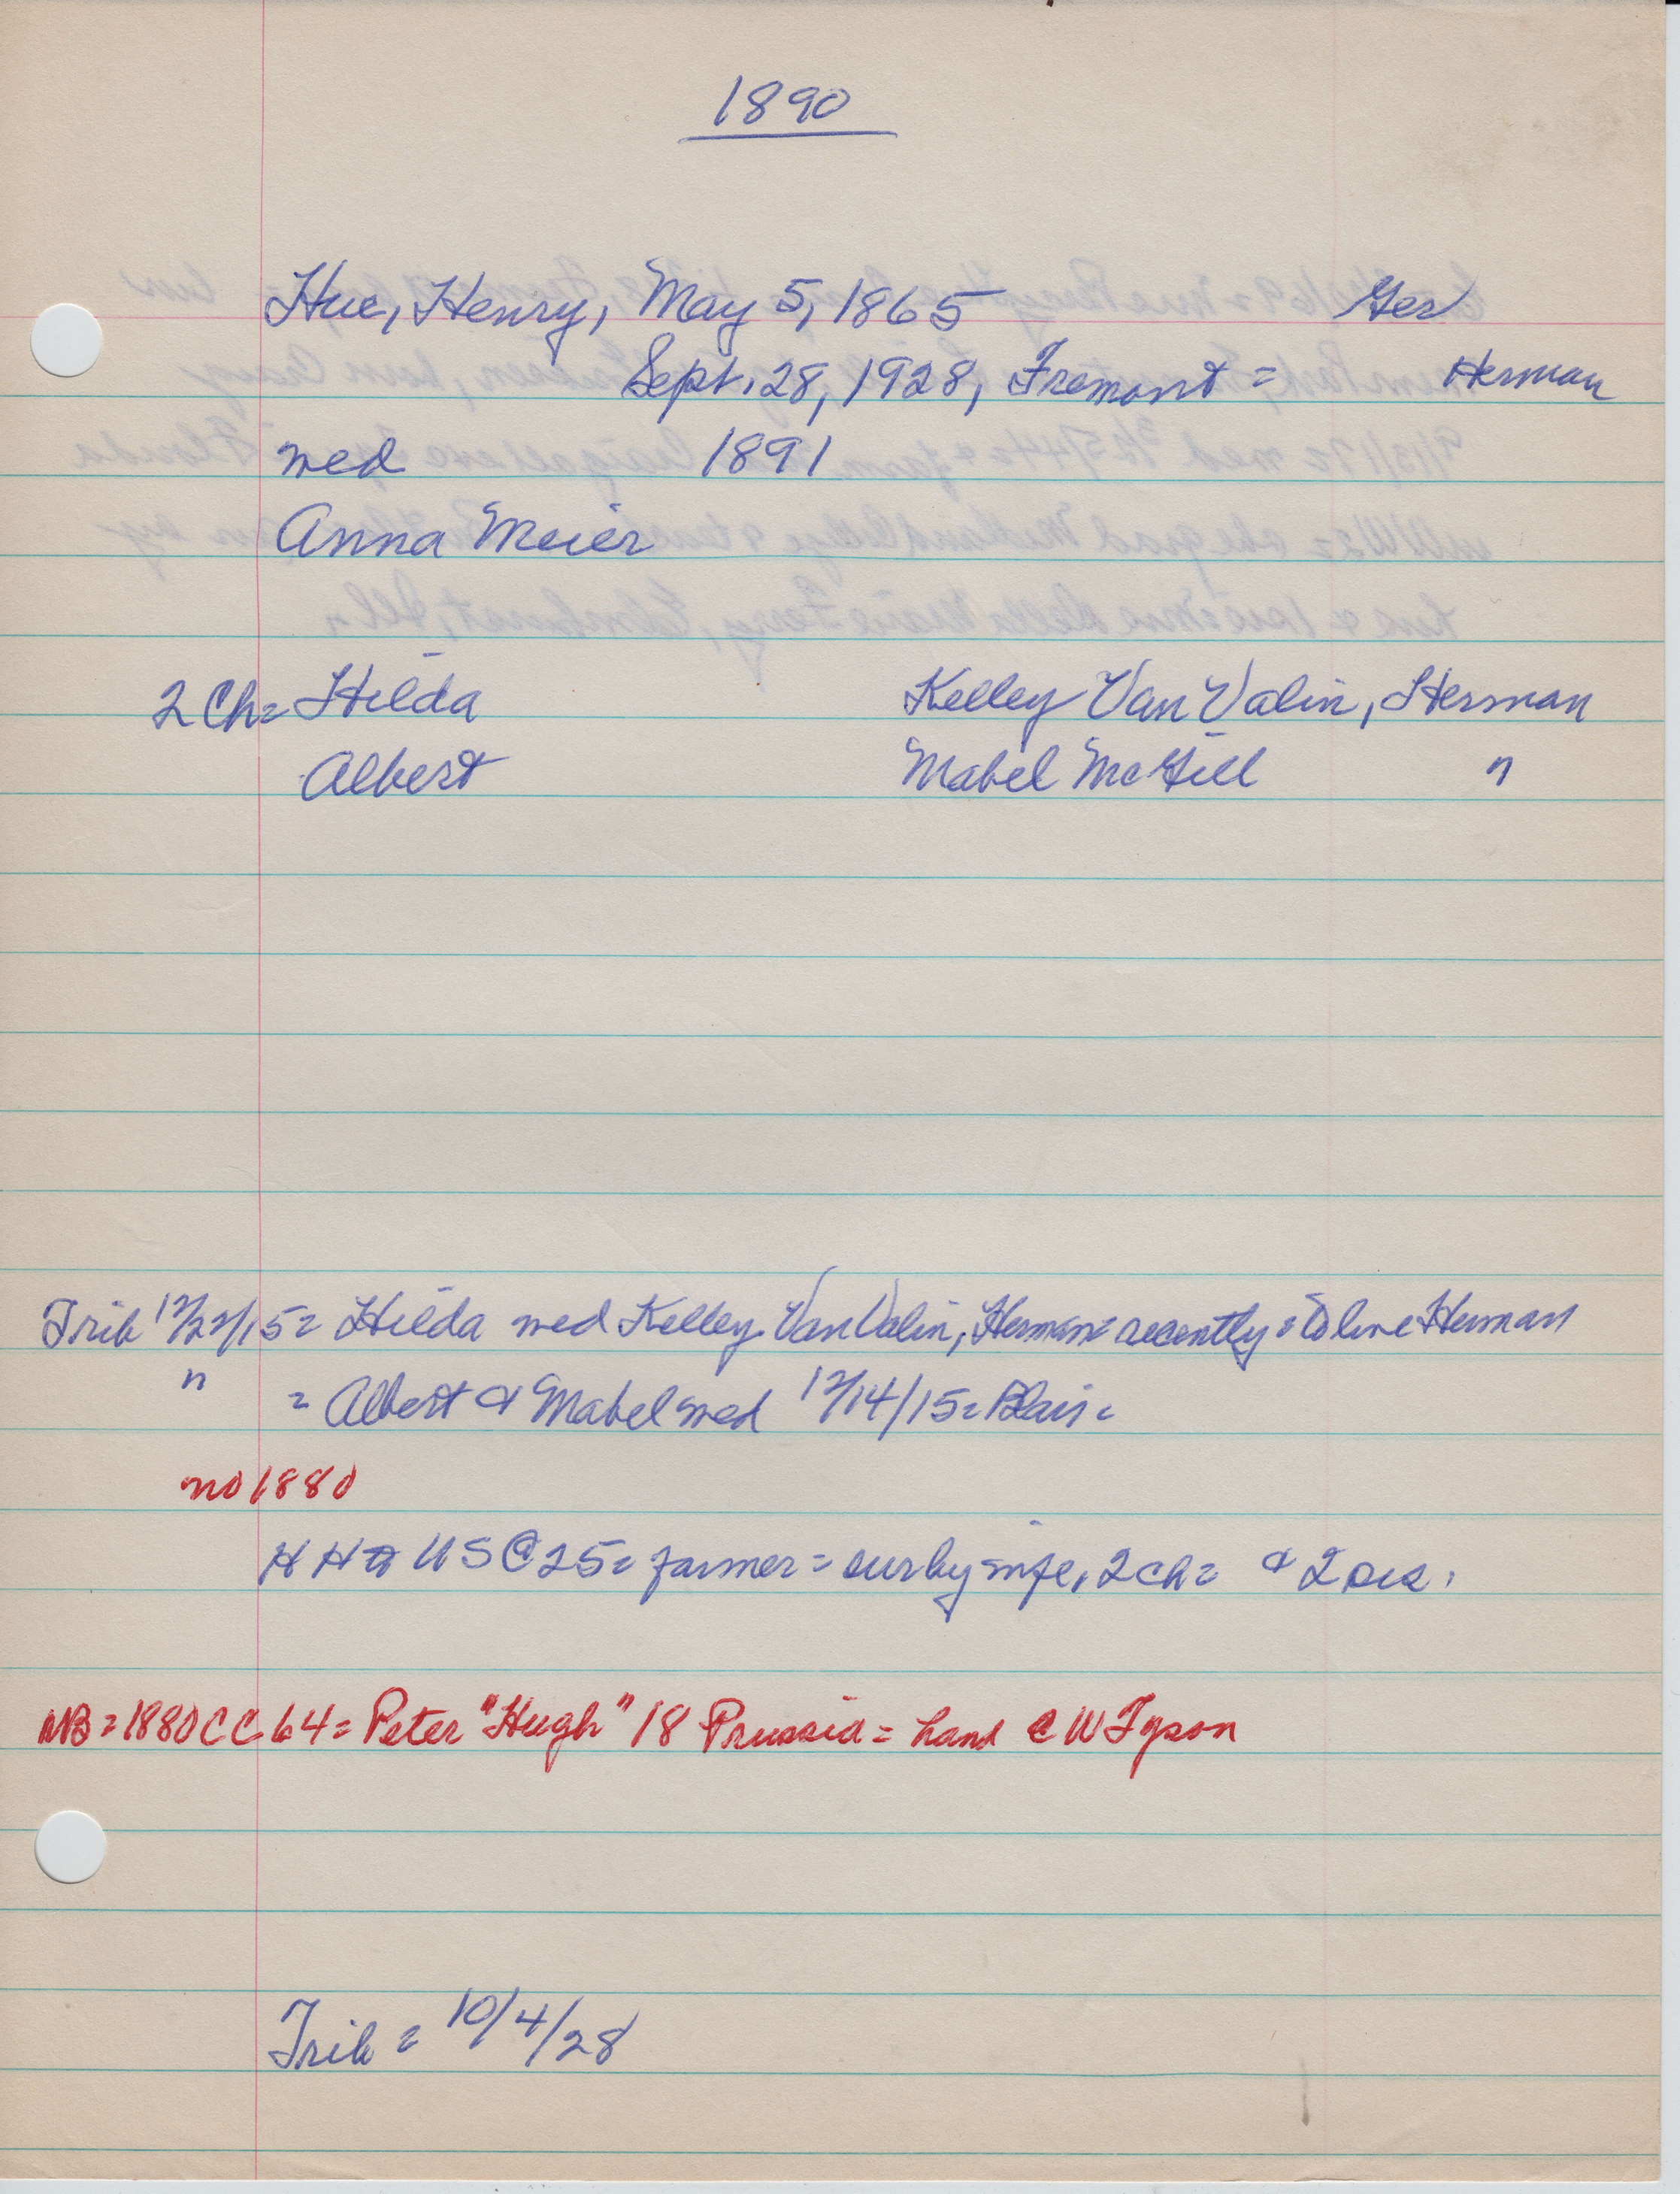 1890
Hue, Henry, May 5, 1865 Ger
Sept. 28, 1928, Fremont = Herman
med 1891
Anna Meier
2 Ch = Hilda Kelley Van Valin, Herman
Albert Mabel McGill "
Trib 12/22/15 = Hilda med Kelley Van Valin, Herman = recently = to live Herman
" = Albert & Mabel med 12/14/15 = Blair =
no 1880
H H to US @ 25 = farmer = sur by wife, 2 ch = & 2 sis.
NB = 1880 CC 64 = Peter "Hugh" 18 Prussia = hand C W Tyson
Trib = 10/4/28